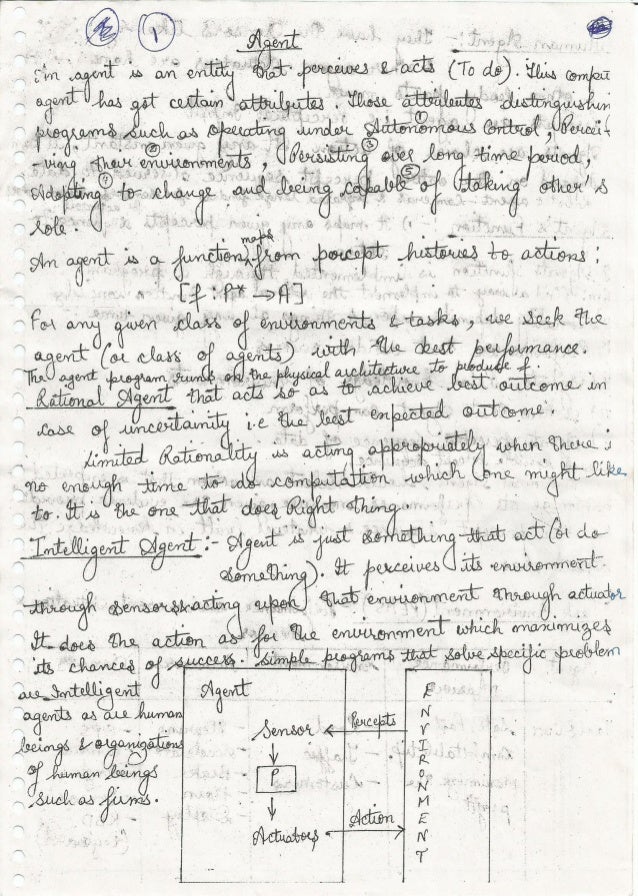 1
Agent
An agent is an entity that perceives & acts (To do). This comput
agent has got certain attributes. Those attributes distinguishin
programs such as operating under ① Autonomous control, Percei-
-ving ② their environments, Persisting ③ over long time period,
Adopting ④ to change and being capable ⑤ of taking other's
role.
An agent is a function maps from percept histories to actions:
[f : P* → A]
For any given class of environments & tasks, we seek the
agent (or class of agents) with the best performance.
The agent program runs on the physical architecture to produce f
Rational Agent that acts so as to achieve best outcome in
case of uncertainity i.e the best expected outcome.
Limited Rationality is acting appropriately when there i
no enough time to do computation which one might like
to. It is the one that does Right thing
Intelligent Agent :- Agent is just something that act (or do
something). It perceives its environment
through sensors & acting upon that environment through actuator
It does the action as for the environment which maximizes
its chances of success. Simple programs that solve specific problem
are Intelligent
agents as are human
beings & organizations
of human beings
such as firms.
Agent
Sensor
Percepts
P
Actuators
Action
ENVIRONMENT